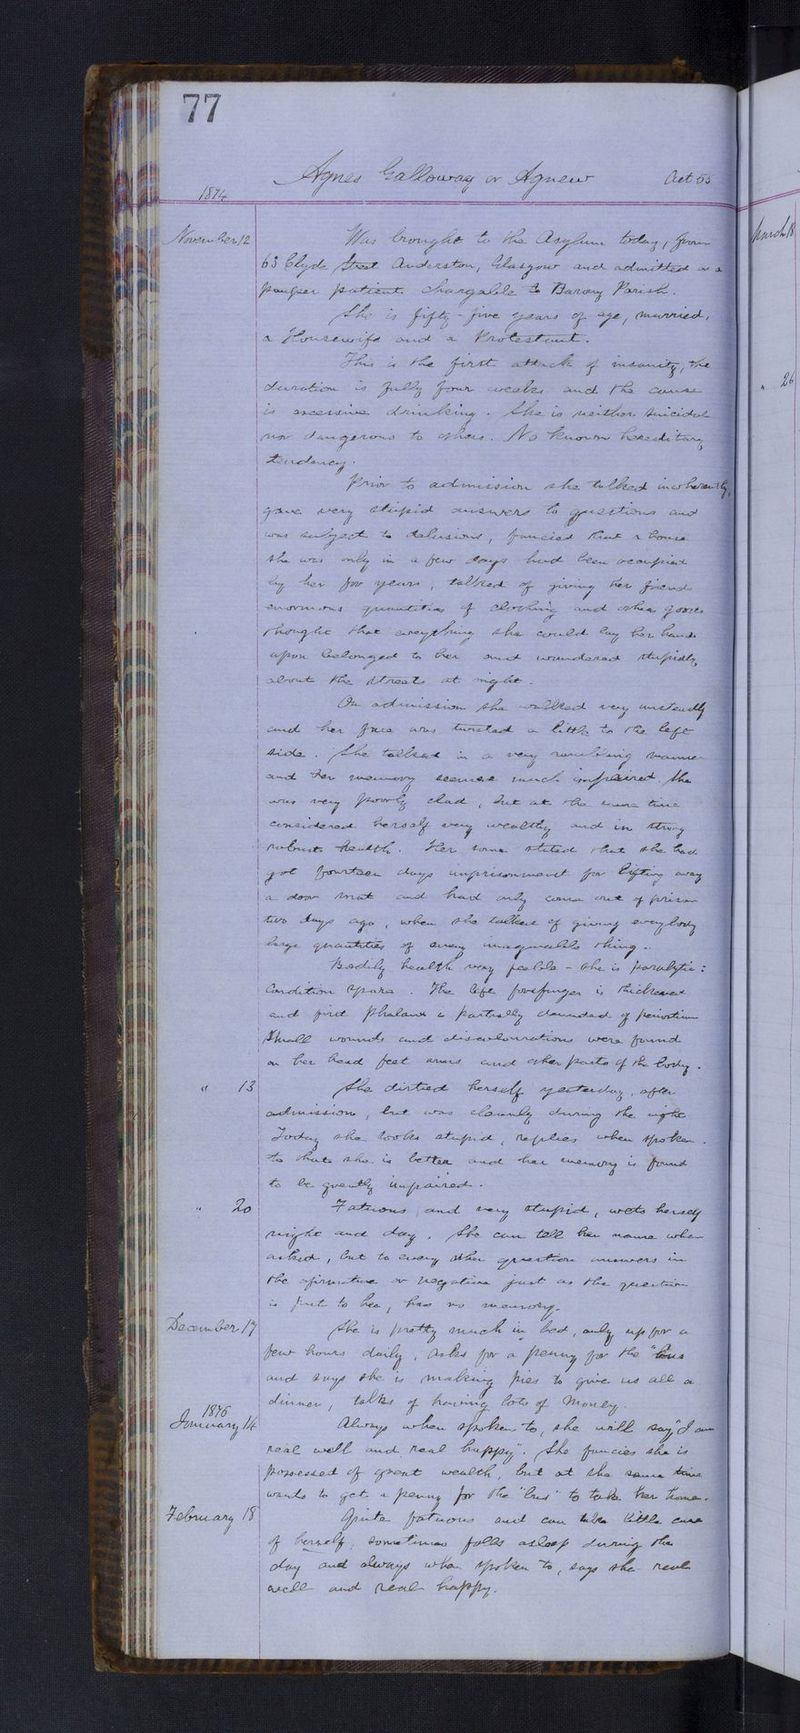 77
Agnes Galloway or Agnew Aet 55
1874
November 12 Was brought to the Asylum today, from
63 Clyde Street Anderston, Glasgow and admitted as a
pauper patient chargable to Barony Parish.
She is fifty-five years of age, married,
a Housewife and a Protestant.
This is the first attack of insanity, the
duration is fully four weeks and the cause
is excessive drinking. She is neither suicidal
nor dangerous to others. No known hereditary
tendency.
Prior to admission she talked incoherently,
gave very stupid answers to questions and
was subject to delusions, fancied that a house
she was only in a few days had been occupied
by her for years, talked of giving her friends
enormous quantities of clothing and other goods
thought that everything she could lay her hands
upon belonged to her and wandered stupidly
about the streets at night.
On admission she walked very unsteadily
and her face was twisted a little to the left
side. She talked in a very rambling manner
and her memory seemed much impaired. She
was very poorly clad, but at the same time
considered herself very wealthy and in strong
robust health. Her sons stated that she had
got fourteen days imprisonment for lifting away
a door mat and had only come out of prison
two days ago, when she talked of giving everybody
large quantities of every imaginable thing.
Bodily health very feeble - she is paralytic:
Condition spare. The left forefinger is thickened
and first Phalanx is partially denuded of periosteum
Small wounds and discolourations were found
on her head feet arms and other parts of the body.
" 13 She dirtied herself yesterday, after
admission, but was cleanly during the night
Today she looks stupid, replies when spoken
to that she is better and her memory is found
to be greatly impaired.
" 20 Fatuous and very stupid, wets herself
night and day. She can tell her name when
asked, but to every other question answers in
the afirmative or negative just as the question
is put to her, has no memory.
December 17 She is pretty much in bed, only up for a
few hours daily, asks for a penny for the "bus
and says she is making pies to give us all a
dinner, talks of having lots of money.
1876
January 14 Always when spoken to, she will say "I am
real well and real happy". She fancies she is
possessed of great wealth, but at the same time
wants to get a penny for the "bus" to take her home.
February 18 Quite fatuous and can take little care
of herself, sometimes falls asleep during the
day and always when spoken to, says she real
well and real happy.
March 18
" 26